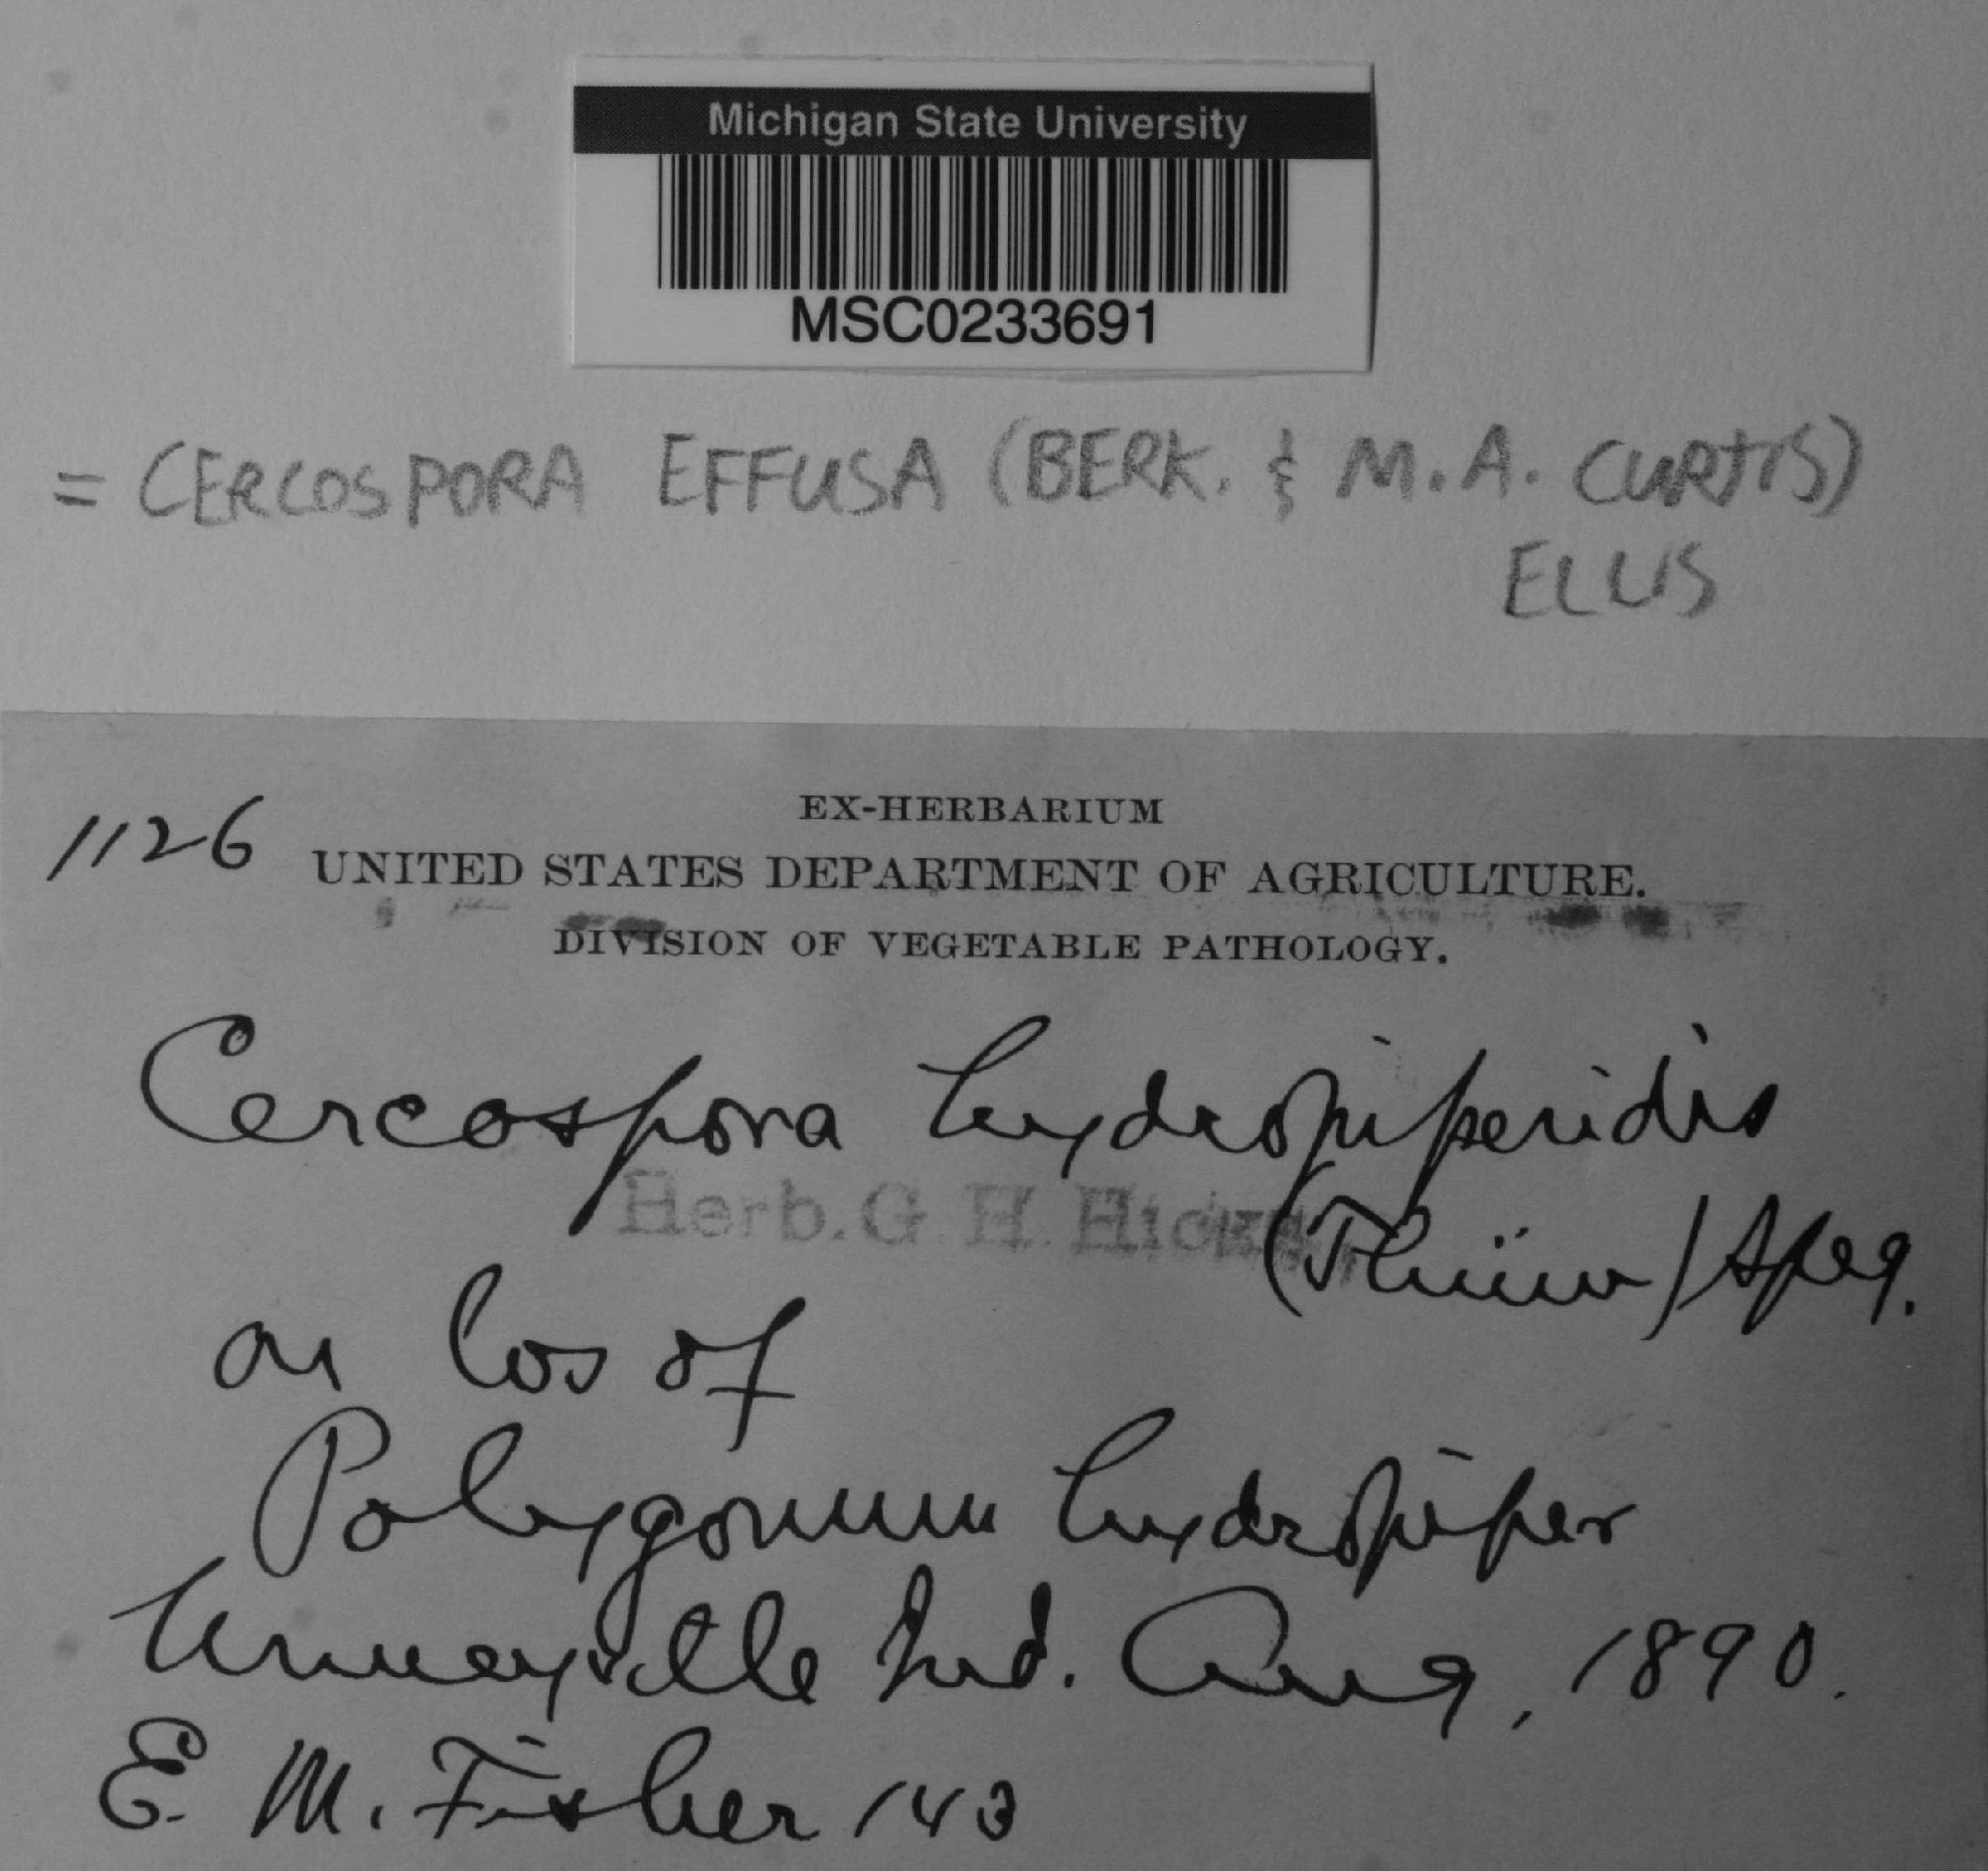 Michigan State University
MSC0233691
= CERCOSPORA EFFUSA (BERK. & M.A. CURTIS)
ELLIS
EX-HERBARIUM
1126
UNITED STATES DEPARTMENT OF AGRICULTURE.
DIVISION OF VEGETABLE PATHOLOGY.
Cercospora hydropiperidis
Herb. G H Hicks
(Thüm) Speg.
on lvs of
Polygonum hydropiper
Ind. Aug, 1890.
E. M. Fisher 143